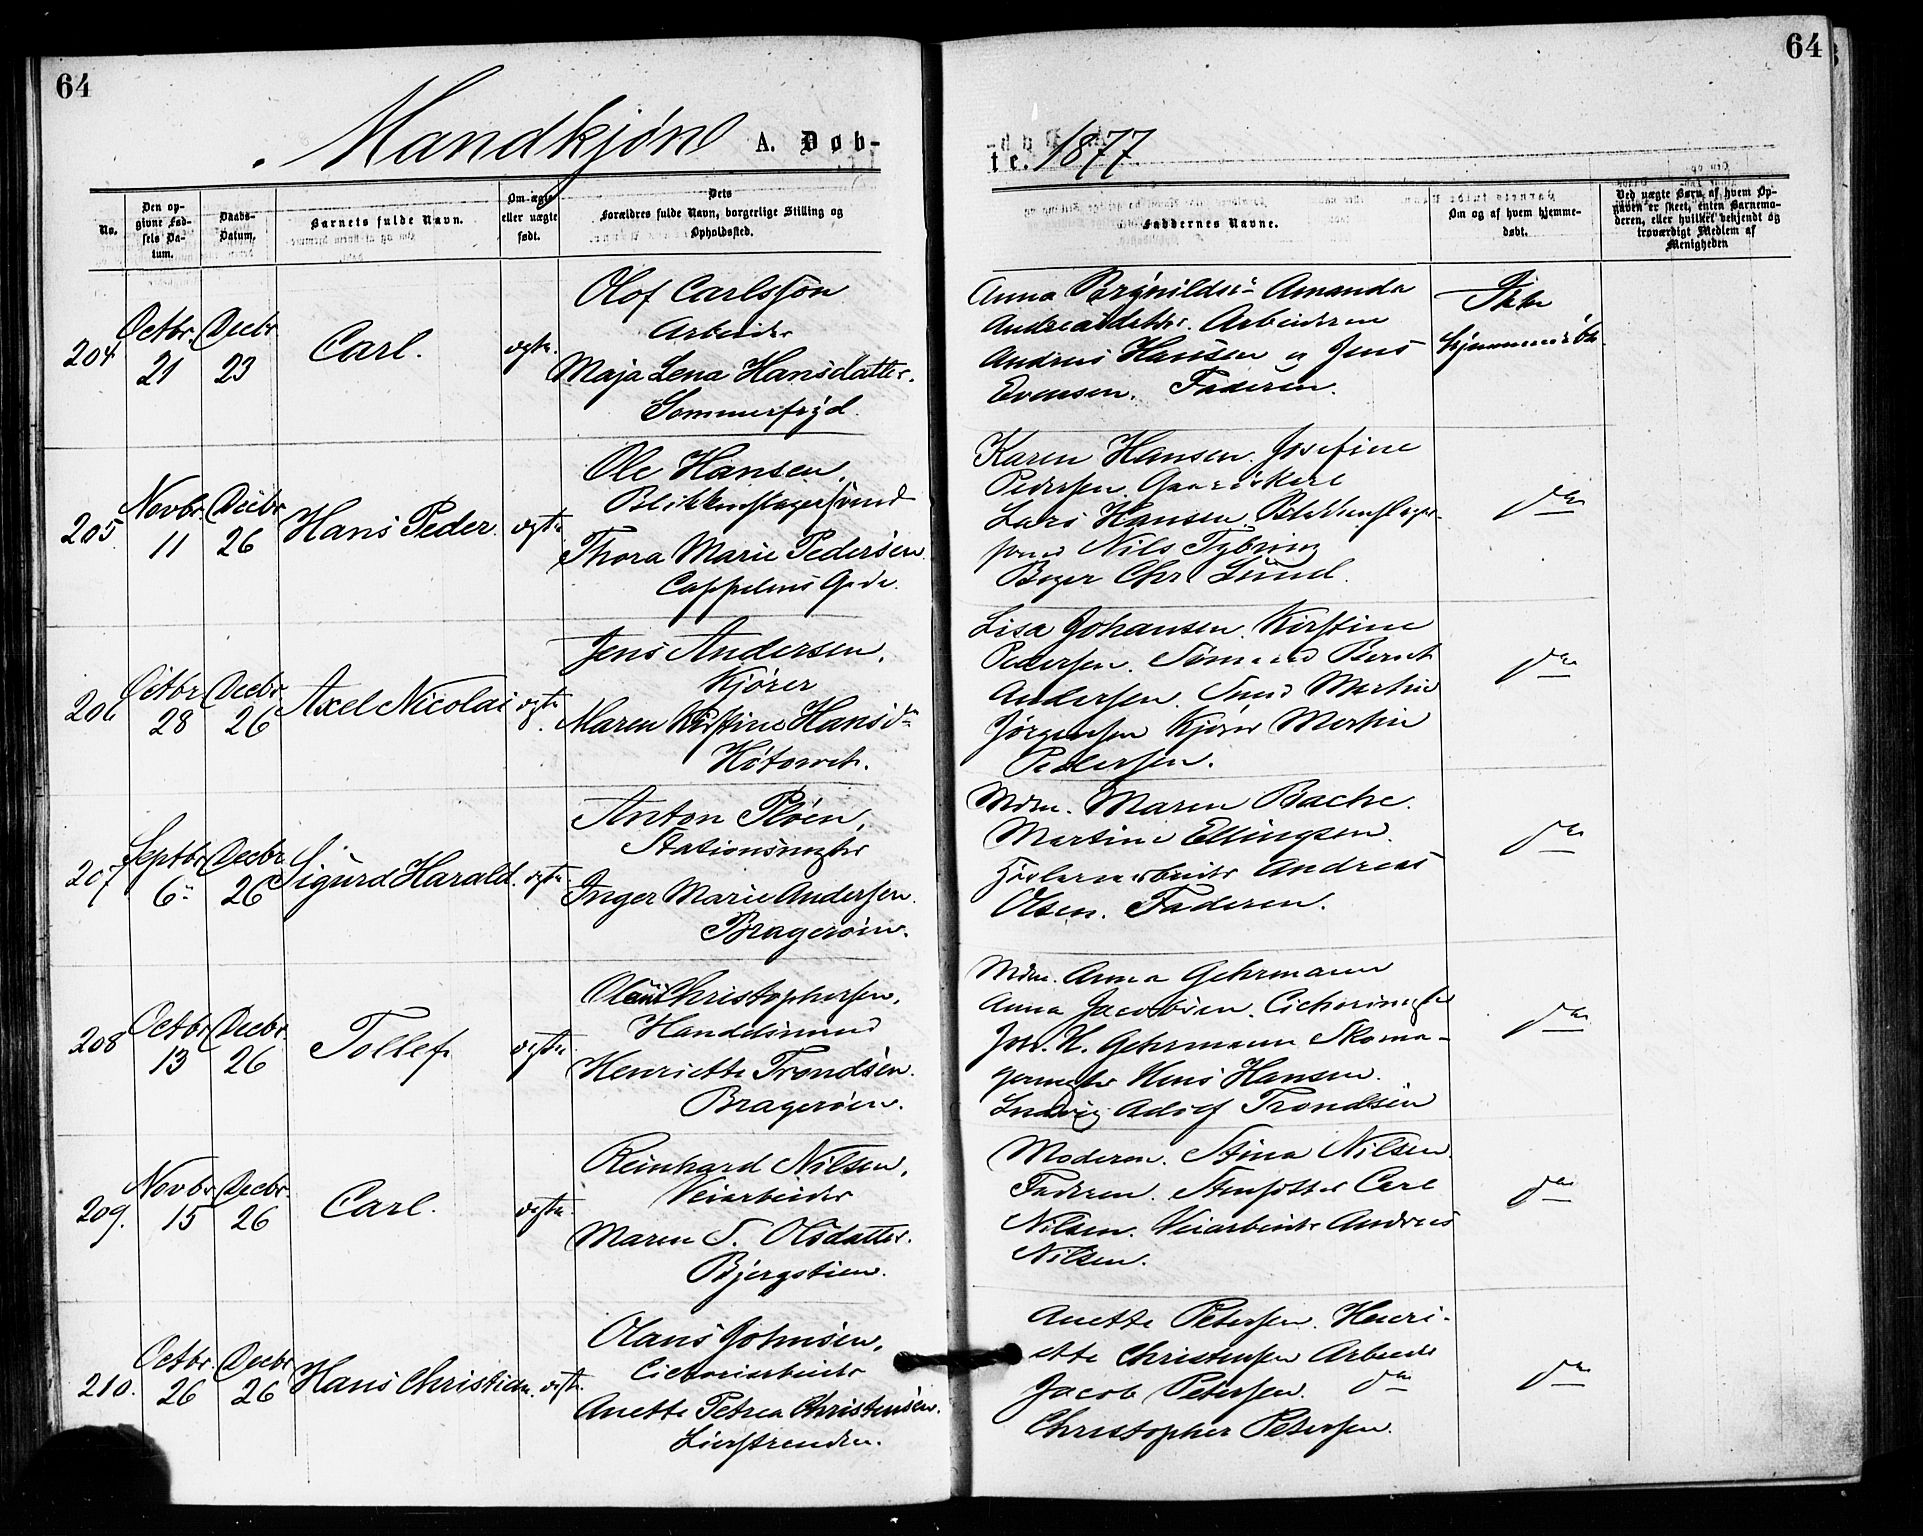 64
64
Mandkjøn A. Døb-
te. 1877.
No.
Den op-
givne Fød-
sels Da-
tum.
Daabs-
Datum.
Barnets fulde Navn.
Om ægte
eller uægte
født.
Dets
Forældres fulde Navn, borgerlige Stilling og
Opholdssted.
Faddernes Navne.
Om og af hvem hjemme-
døbt.
Ved uægte Børn, af hvem Op-
gaven er skeet, enten Barnemo-
deren, eller hvilket bekjendt og
troværdigt Medlem af
Menigheden
204
Octbr. 21
Decbr 23
Carl.
ægte.
Olof Carlsson
Arbeider
Maja Lena Hansdatter.
Sommerfryd.
Anna Amanda
Andreasdatter. Arbeiderne
Andreas Hansen og Jens
Evensen. Faderen.
Ikke
hjemmedøbt
205
Novbr. 11
Decbr 26
Hans Peder.
ægte
Ole Hansen,
Blikkenslagersvend
Thora Marie Pedersen.
Cappelens Gade.
Karen Hansen. Josefine
Pedersen. Gaardskarl
Lars Hansen. Blikkenslager-
svend Nils Tybring
Bager Chr. Lund.
do
206
Octbr 28
Decbr. 26
Axel Nicolai
ægte.
Jens Andersen,
Kjører
Maren Kirstine Hansdr
Høtorvet.
Lisa Johansen. Kirstine
Pedersen. Sømand Bernt
Andersen. Smed Martin
Jørgensen Kjører Martin
Pedersen.
do
207
Septbr. 6
Decbr 26
Sigurd Harald.
ægte.
Anton Pløen,
Stationsmester
Inger Marie Andersen.
Bragerøen.
Mdm. Maren Bache.
Martine Ellingsen.
Andreas
Olsen. Faderen.
do
208
Octbr. 13
Decbr. 26
Tollef.
ægte.
Christophersen,
Handelsmand
Henriette Trondsen.
Bragerøen.
Mdm. Anna Gehrmann
Anna Jacobsen. Cichorimester
Joh. H. Gehrmann Skoma-
germester Hans Hansen.
Ludvig Adolf Trondsen
do
209.
Novbr. 15
Decbr. 26
Carl.
ægte.
Reinhard Nilsen,
Veiarbeider
Maren S. Olsdatter.
Bjergstien.
Moderen. Stina Nilsen.
Faderen. Carl
Nilsen. Veiarbeider Andreas
Nilsen.
do
210.
Octbr. 26
Decbr 26
Hans Christian.
ægte.
Olans Johnsen,
Cichoriarbeider
Anette Petrea Christensen.
Lierstranden.
Anette Petersen. Henri-
ette Christensen Arbeider
Jacob Petersen. do
Christopher Petersen.
do